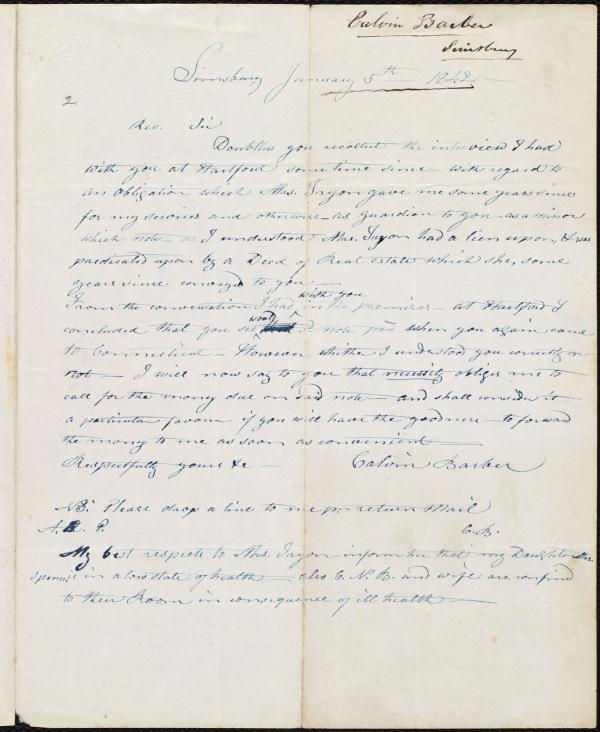 Calvin Barber
Simsbury
Simsbury January 5th 1842
2
Rev. Sir
Doubtless you recollect the interview I had
with you at Hartford sometime since with regard to
an obligation which Mrs. Jayon gave me some years since
for my services and otherwise as Guardian to you as a minor
which note as I understood Mrs. Jayon had a lien upon, & was
praedicated upon by a Deed of Real estate which she, some
years since conveyed to you
From the conversation I had with you in the premises at Hartford I
concluded that you would see sd note paid when you again came
to Connecticut - However whether I understood you correctly or
not - I will now say to you that necessity obliges me to
call for the money due on said note - and shall consider it
a particular favour if you will have the goodness to forward
the money to me as soon as convenient
Respectfully yours &c - Calvin Barber
NB. Please drop a line to me pr return Mail
C.B.
My best respects to Mrs. Jayon inform her that my Daughter Mrs.
in a low state of health - also C. N. B. and wife are confind
to their Room in consequence of ill health